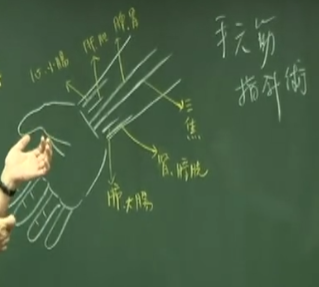 手六筋
指針術
心.小腸
肝.胆
脾.胃
三
焦
腎.膀胱
肺.大腸